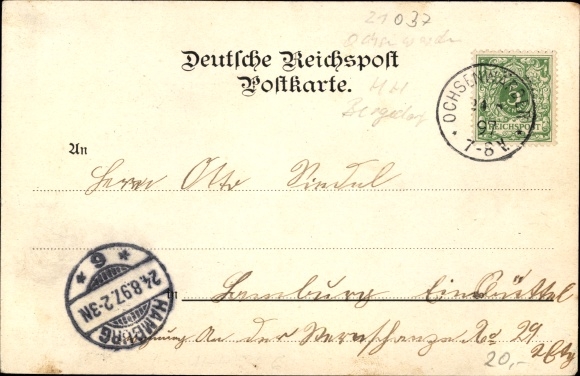 21037
Ochsenwerder
Deutsche Reichspost
Postkarte.
HH
Bergedorf
OCHSENWÄRDER
24 8 97
7-8V.
REICHSPOST
5
An
Herrn Otto
in Hamburg Eimsbüttel
Wohnung An der Sternschanze No 29
20,-
HAMBURG
24.8.97. 2-3N
* 6 *